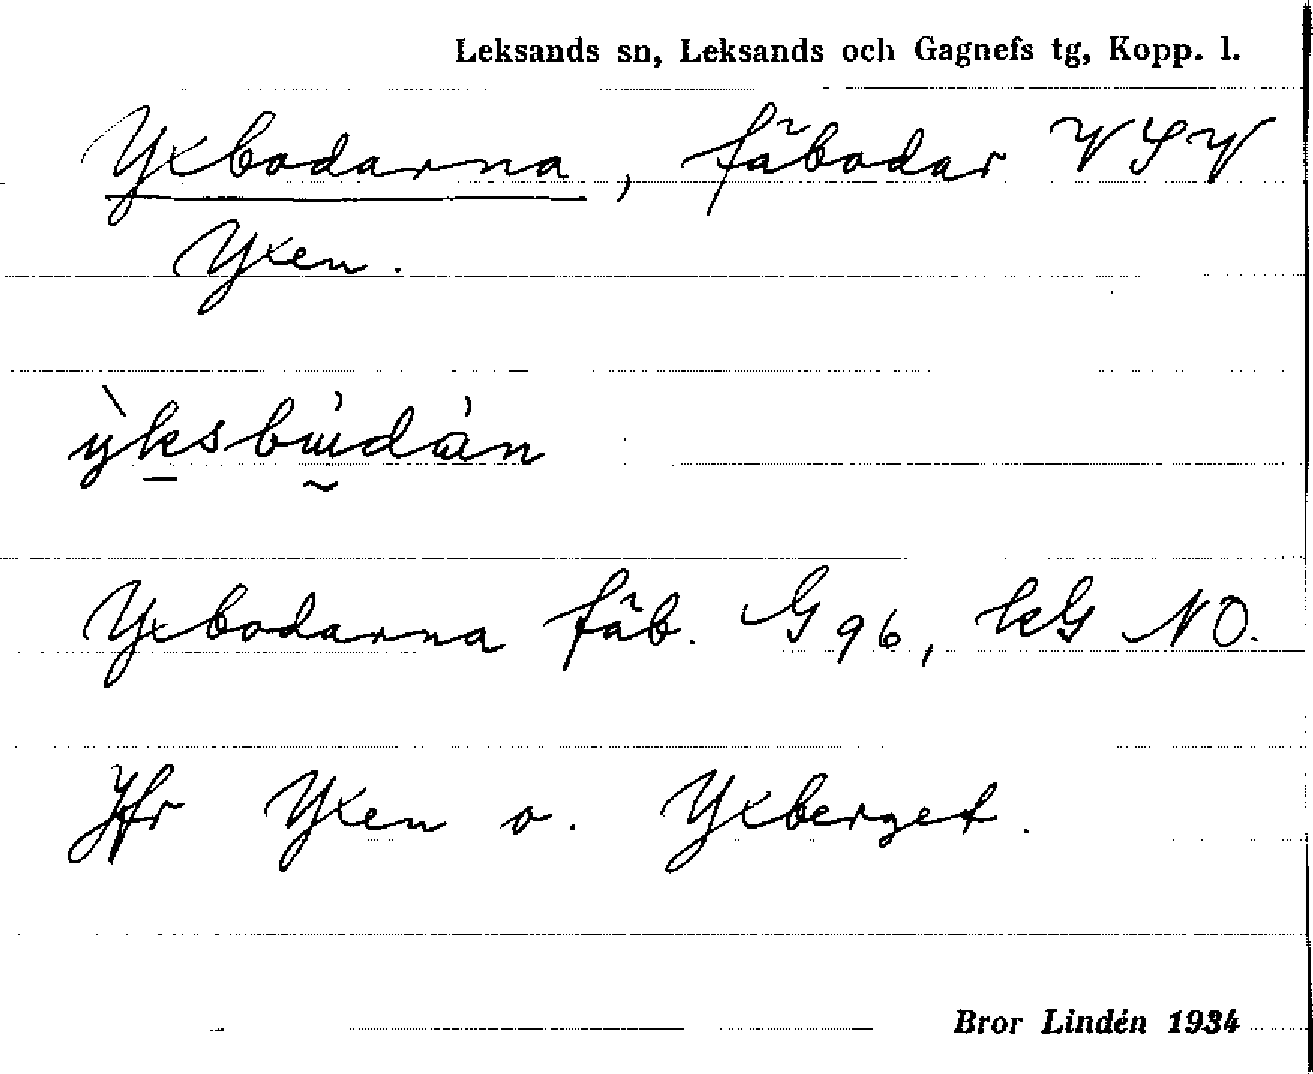 Leksands sn, Leksands och Gagnefs tg, Kopp. l.
Yxbodarna, fäbodar VSV
Yxen.
Yxbodarna fäb. G 96, kG NO.
Jfr Yxen o. Yxberget.
Bror Lindén 1934